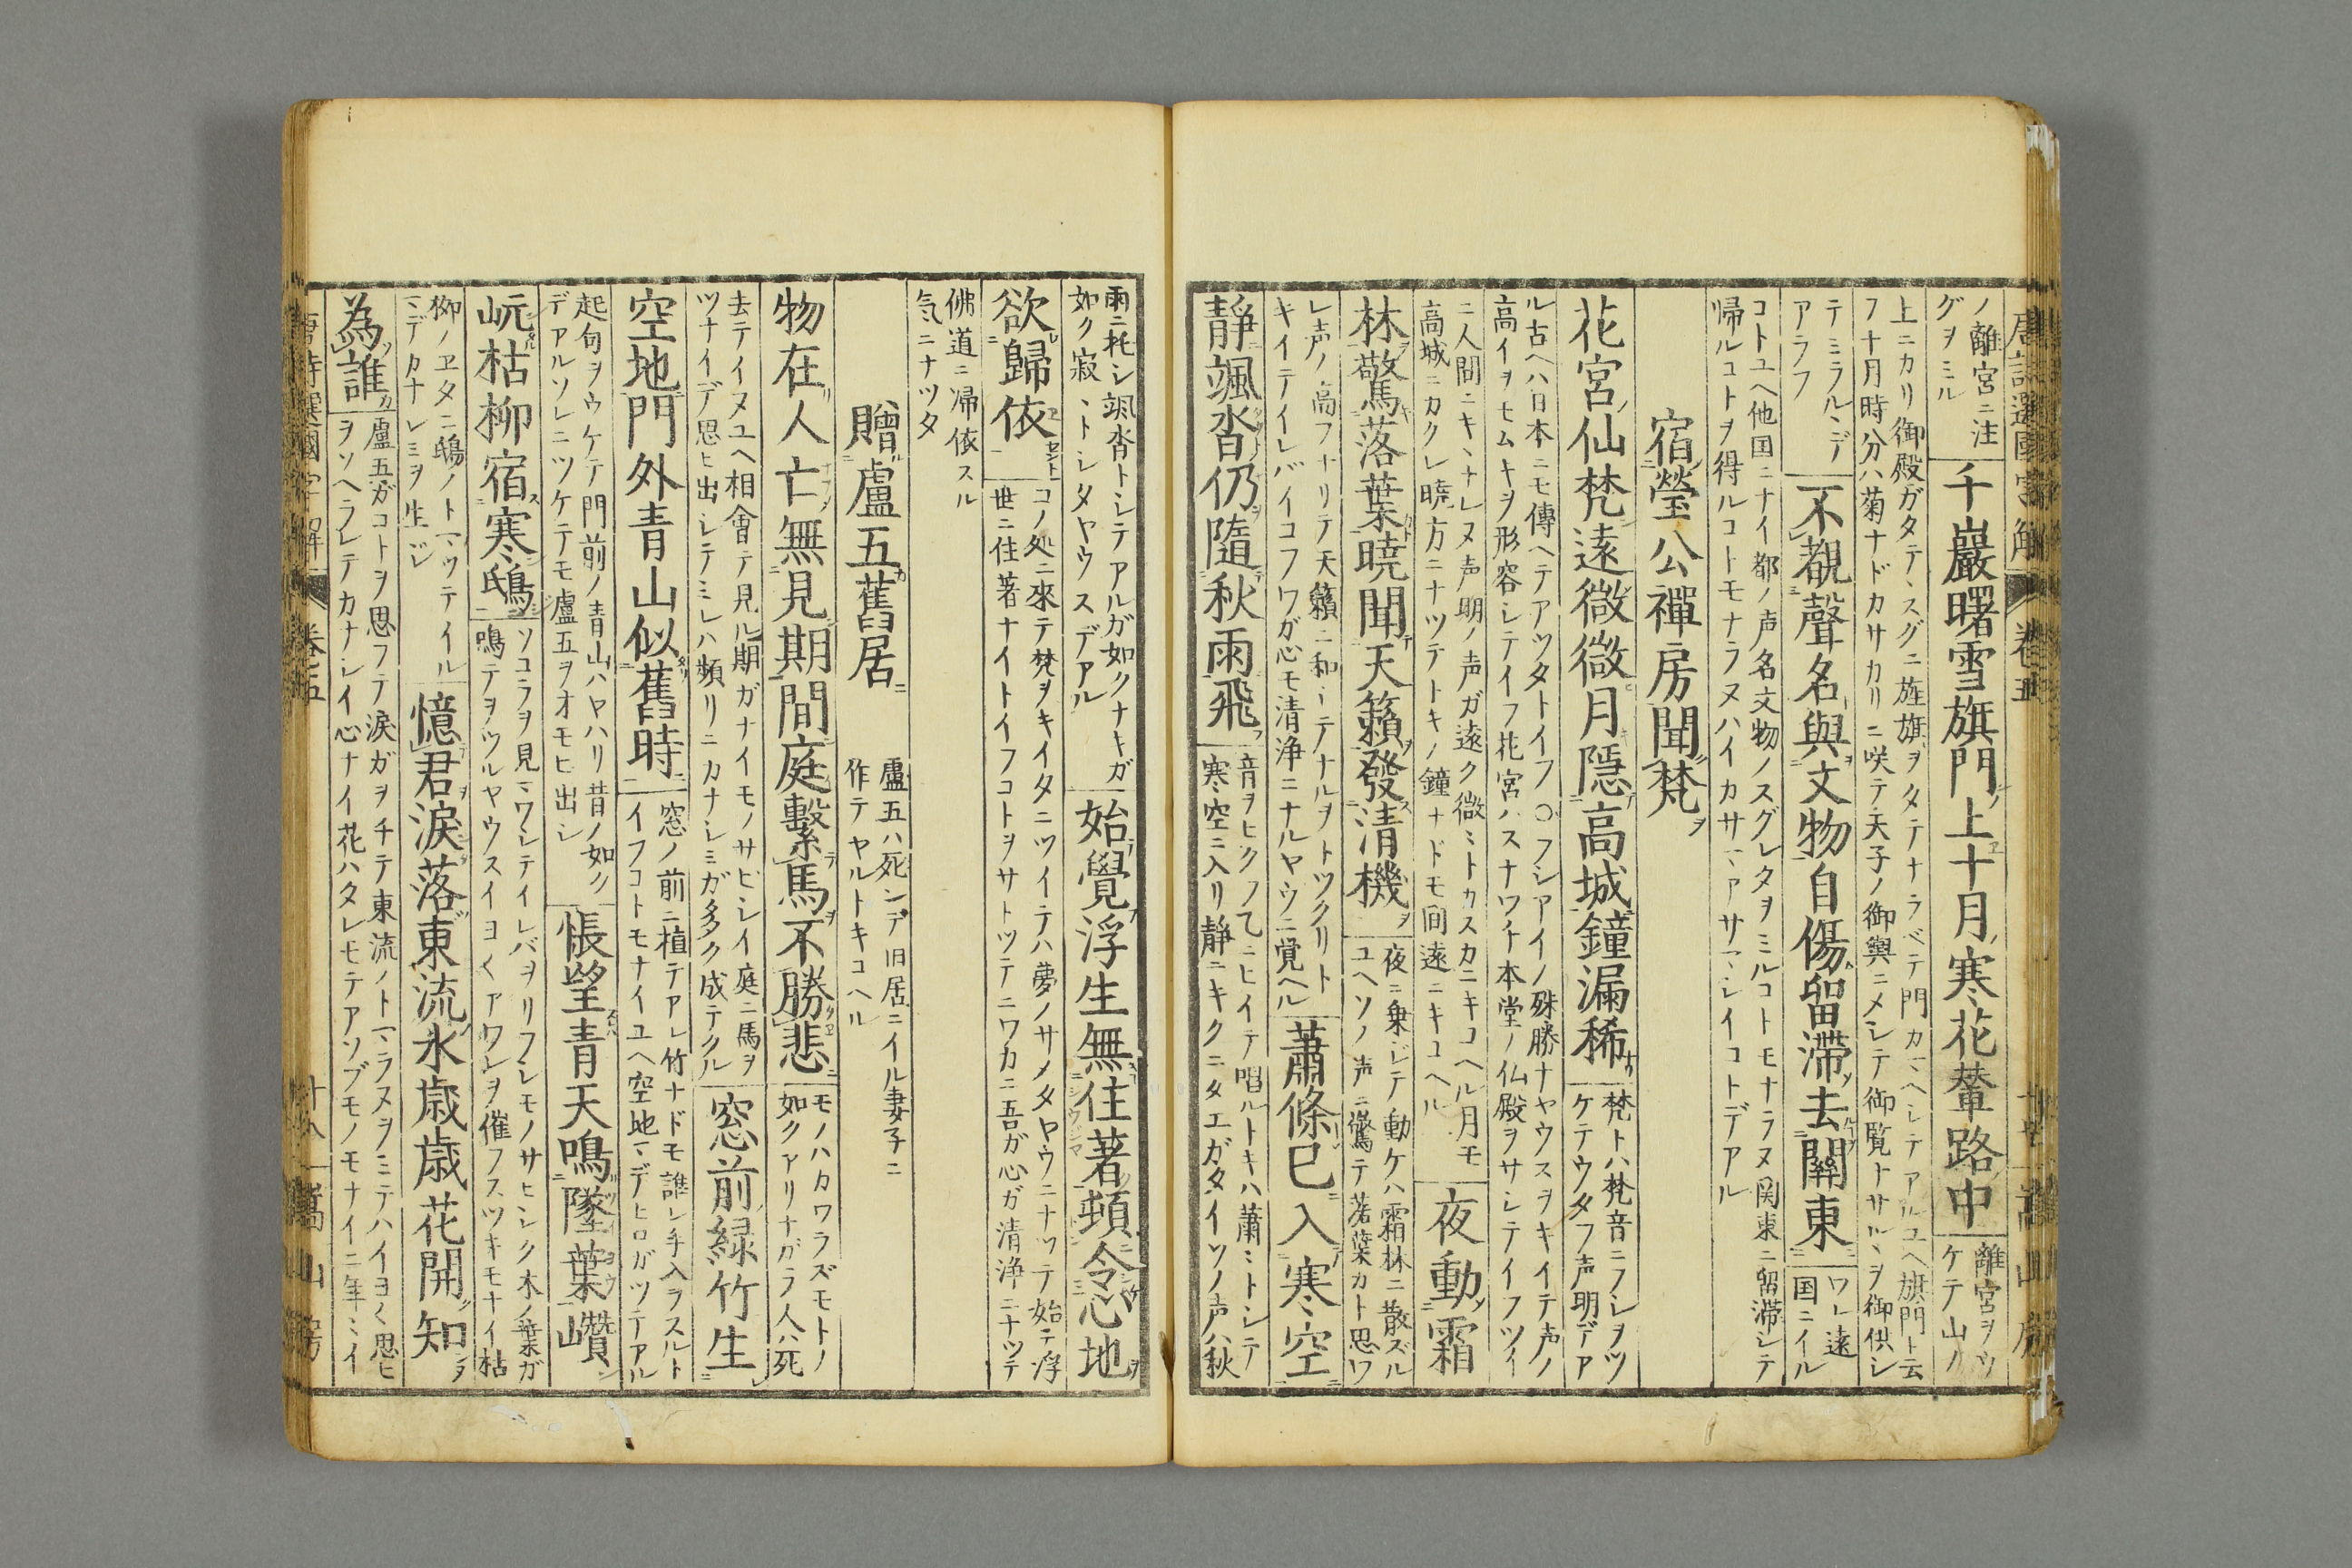 唐詩選國字解 卷五 嵩山房
ノ離宮ニ注
グヲミル
千巖曙雪旗門上十月寒花輦路中
離宮ヲツ
ケテ山ノ
上ニカリ御殿ガタテヽスグニ旌旗ヲタテナラベテ門カマヘシテアルユヘ旗門ト云
フ十月時分ハ菊ナドカサカリニ咲テ天子ノ御輿ニメシテ御覧ナサルヽヲ御供シ
テミラルヽデ
アラフ
不覩聲名與文物自傷留滯去關東
ワレ遠
国ニイル
コトユヘ他国ニナイ都ノ声名文物ノスグレタヲミルコトモナラヌ関東ニ留滞シテ
帰ルコトヲ得ルコトモナラヌハイカサマアサマシイコトデアル
宿瑩公禪房聞梵
花宮仙梵遠微微月隱高城鐘漏稀
梵トハ梵音ニフシヲツ
ケテウタフ声明デア
ル古ヘハ日本ニモ傳ヘテアツタトイフ〇フシアイノ殊勝ナヤウスヲキイテ声ノ
高イヲモムキヲ形容シテイフ花宮ハスナワチ本堂ノ仏殿ヲサシテイフツイ
ニ人間ニキヽナレヌ声明ノ声ガ遠ク微ミトカスカニキコヘル月モ
高城ニカクレ曉方ニナツテトキノ鐘ナドモ间遠ニキコヘル
夜動霜
林驚落葉曉聞天籟發清機
夜ニ乗ジテ動ケハ霜林ニ散ズル
ユヘソノ声ニ驚テ落葉カト思ワ
レ声ノ高フナリテ天籟ニ和シテナルヲトツクリト
キイテイレバイコフワガ心モ清浄ニナルヤウニ覚ヘル
蕭條已入寒空
靜颯沓仍隨秋雨飛
音ヲヒクフ乙ニヒイテ唱ルトキハ蕭ミトシテ
寒空ニ入リ静ニキクニタエガタイソノ声ハ秋
雨ニ托シ颯沓トシテアルガ如クナキガ
如ク寂ヽトシタヤウスデアル
始覺浮生無住著頓令心地
欲歸依
コノ処ニ來テ梵ヲキイタニツイテハ夢ノサメタヤウニナツテ始テ浮
世ニ住著ナイトイフコトヲサトツテニワカニ吾ガ心ガ清浄ニナツテ
佛道ニ帰依スル
気ニナツタ
贈盧五舊居
盧五ハ死ンデ旧居ニイル妻子ニ
作テヤルトキコヘル
物在人亡無見期間庭繫馬不勝悲
モノハカワラズモトノ
如クアリナガラ人ハ死
去テイヌユヘ相會テ見ル期ガナイモノサビシイ庭ニ馬ヲ
ツナイデ思ヒ出シテミレハ頻リニカナシミガ多ク成テクル
窓前緑竹生
空地門外青山似舊時
窓ノ前ニ植テアレ竹ナドモ誰レ手入ラスルト
イフコトモナイユヘ空地マデヒロガツテアル
起句ヲウケテ門前ノ青山ハヤハリ昔ノ如ク
デアルソレニツケテモ盧五ヲオモヒ出シ
悵望青天鳴墜葉巑
岏枯柳宿寒鴟
ソコラヲ見マワシテイレバヲリフシモノサヒシク木ノ葉ガ
鳴テヲツルヤウスイヨ〱アワレヲ催フスツキモナイ枯
柳ノヱタニ鴟ノトマツテイル
マデカナシミヲ生ジ
憶君淚落東流水歳歳花開知
為誰
盧五ガコトヲ思フテ涙ガヲチテ東流ノトマラヌヲミテハイヨ〱思ヒ
ヲソヘラレテカナシイ心ナイ花ハタレモテアソブモノモナイニ年ミイ
唐詩選國字解 卷五 十八 嵩山房